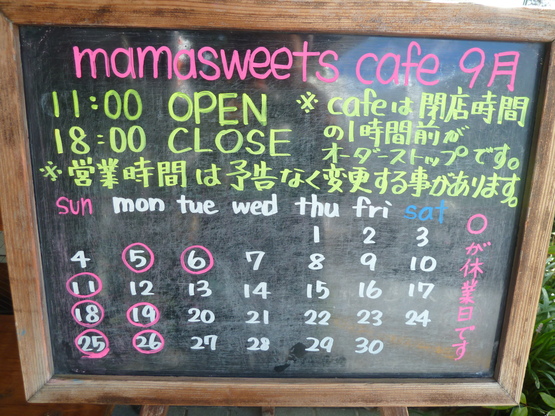 mamasweets cafe 9月
11:00 OPEN
18:00 CLOSE
※ cafeは閉店時間
の1時間前が
オーダーストップです。
※営業時間は予告なく変更する事があります。
sun mon tue wed thu fri sat
1 2 3
4 5 6 7 8 9 10
11 12 13 14 15 16 17
18 19 20 21 22 23 24
25 26 27 28 29 30
○が休業日です